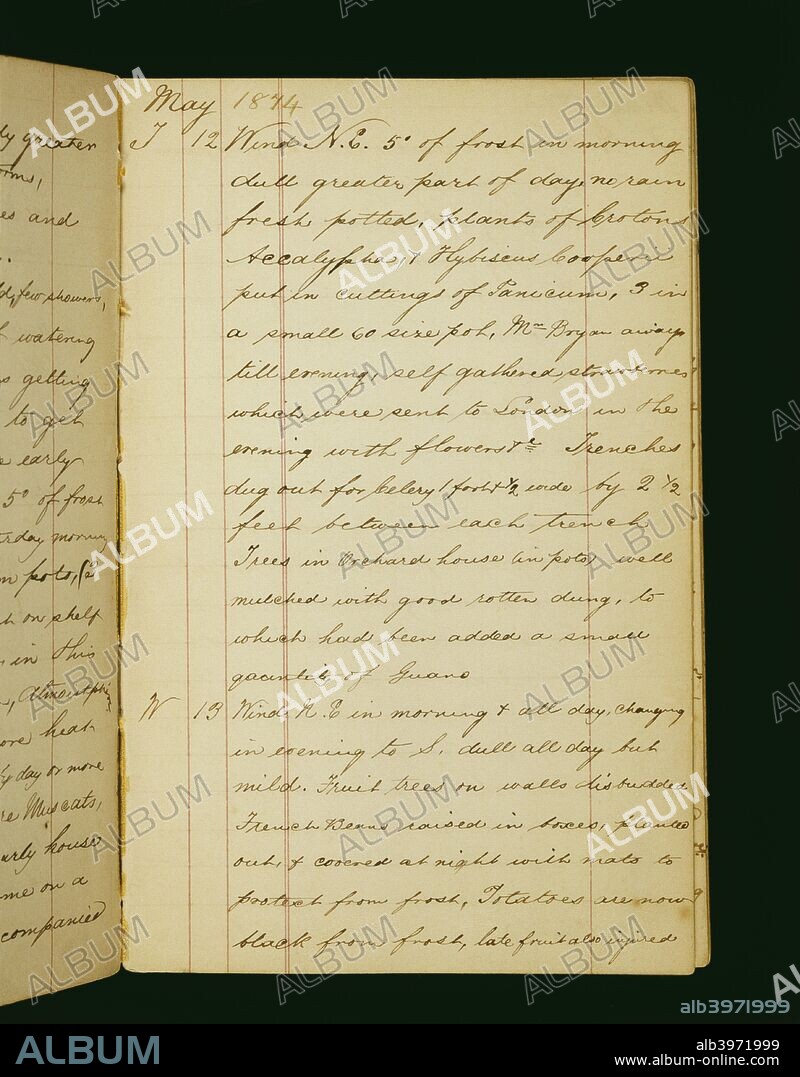 ly greater
orms,
es and
d, few showers,
f watering
s getting
to get
e early
5° of frost
rday morning
n pots, (2
t on shelf
, in this
, almost
ore heat
day or more
re Muscats,
arly house
me on a
companied
May 1874
T 12 Wind N.E. 5° of frost in morning
dull greater part of day, no rain
fresh potted, plants of Crotons
Accalypha, & Hybiscus Cooperii
put in cuttings of Panicum, 3 in
a small 60 size pot, Mr Bryan away
till evening, self gathered, strawberries
which were sent to London in the
evening with flowers &c Trenches
dug out for Celery 1 foot & 1/2 wide by 2 1/2
feet between each trench
Trees in Orchard house (in pots) well
mulched with good rotten dung, to
which had been added a small
of Guano
W 13 Wind N.E in morning & all day, changing
in evening to S. dull all day but
mild. Fruit trees on walls disbudded
French Beans raised in boxes, planted
out, & covered at night with mats to
protect from frost, Potatoes are now
black from frost, late fruit also injured
ALBUM
alb3971999
ALBUM
alb3971999
www.album-online.com